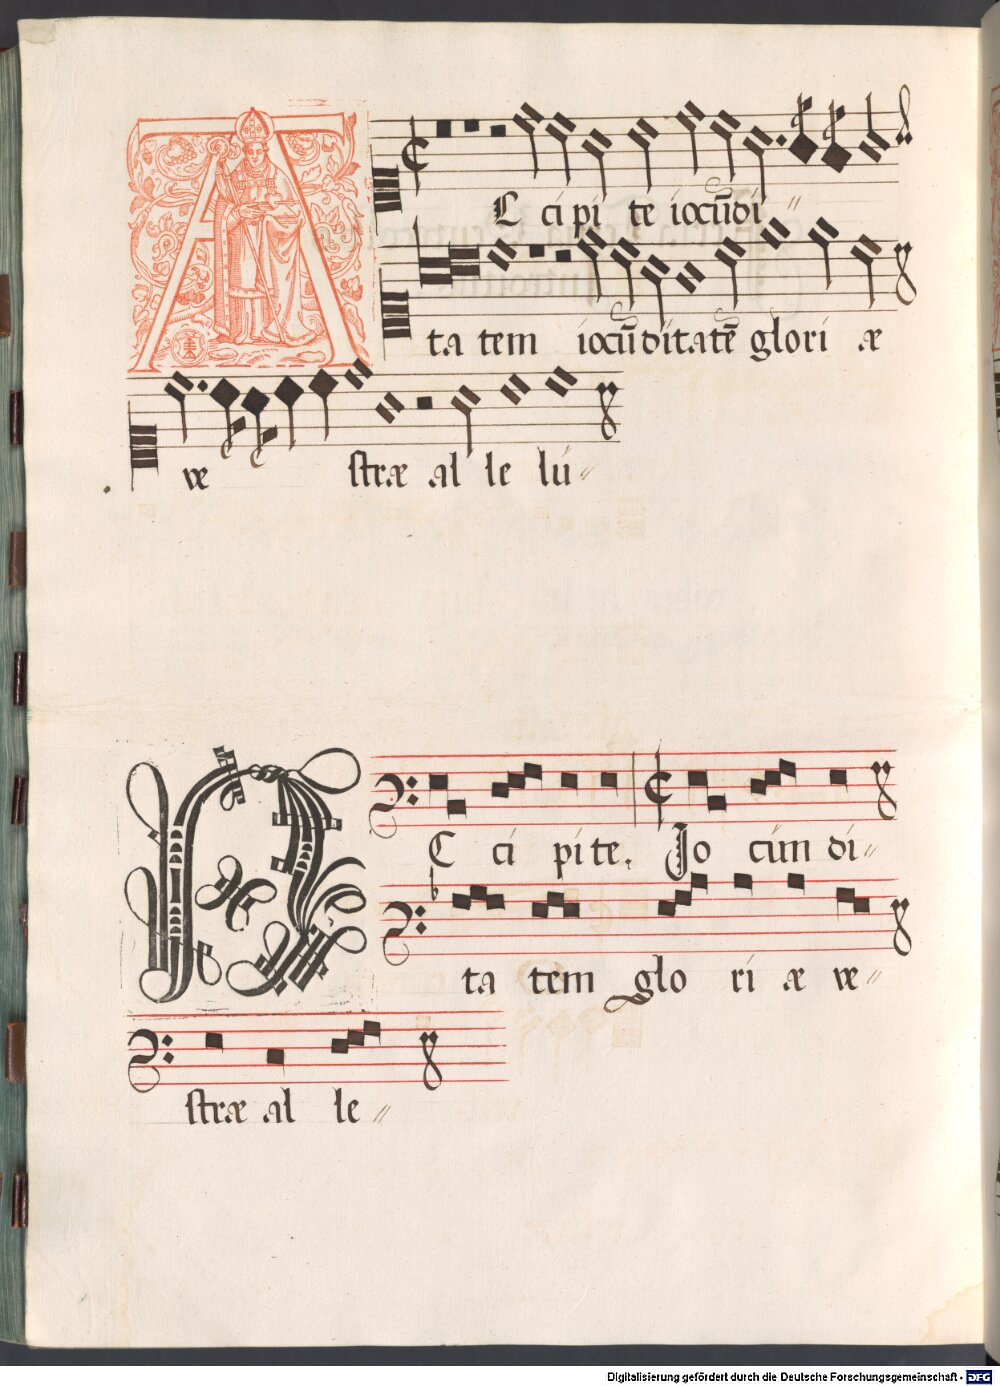 A C ci pi te iocūdi〃
ta tem iocūditatē glori æ
ve stræ al le lu〃
A C ci pi te. Jo cun di〃
ta tem glo ri æ ve〃
stræ al le〃
Digitalisierung gefördert durch die Deutsche Forschungsgemeinschaft - DFG